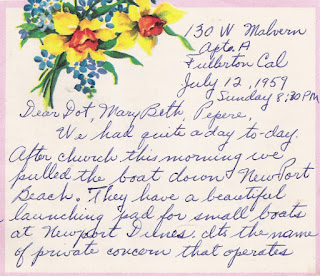 130 W Malvern
Apto. A
Fullerton Cal
July 12, 1959
Sunday 8:30 PM
Dear Dot, Mary Beth, Pepere,
We had quite a day to-day.
After church this morning we
pulled the boat down NewPort
Beach. They have a beautiful
launching pad for small boats
at Newport Dunes. Its the name
of private concern that operates